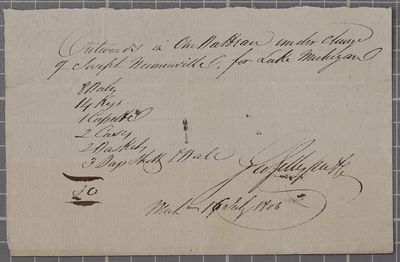 Outwards in One Batteau under charge
of Joseph for Lake Michigan
8 Bales
14 Kegs
1 Cassette
2 Cases
2 Baskets
3 Bags Shott & Ball
20
Geo Gillespie & Co
Mich 16 July 1806